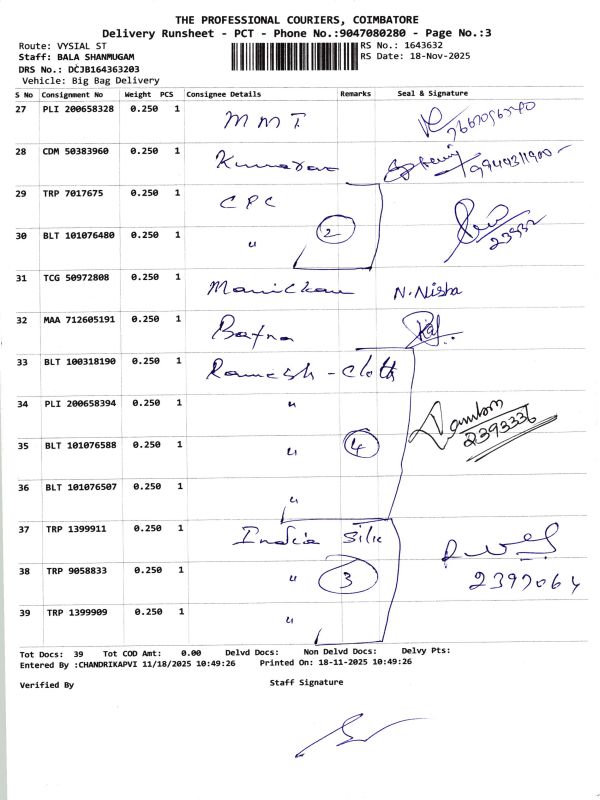 THE PROFESSIONAL COURIERS, COIMBATORE
Delivery Runsheet - PCT - Phone No.:9047080280 - Page No.:3
Route: VYSIAL ST RS No.: 1643632
Staff: BALA SHANMUGAM RS Date: 18-Nov-2025
DRS No.: DCJB164363203
Vehicle: Big Bag Delivery
S No Consignment No Weight PCS Consignee Details Remarks Seal & Signature
27 PLI 200658328 0.250 1 MMT
28 CDM 50383960 0.250 1 Kumaran
29 TRP 7017675 0.250 1 CPC
30 BLT 101076480 0.250 1 " 2 23932
31 TCG 50972808 0.250 1 N.Nisha
32 MAA 712605191 0.250 1 Bafna
33 BLT 100318190 0.250 1 Ramesh - cloth
34 PLI 200658394 0.250 1 "
35 BLT 101076588 0.250 1 " 4 2393336
36 BLT 101076507 0.250 1 "
37 TRP 1399911 0.250 1 India silk
38 TRP 9058833 0.250 1 " 3 2397064
39 TRP 1399909 0.250 1 "
Tot Docs: 39 Tot COD Amt: 0.00 Delvd Docs: Non Delvd Docs: Delvy Pts:
Entered By :CHANDRIKAPVI 11/18/2025 10:49:26 Printed On: 18-11-2025 10:49:26
Verified By Staff Signature